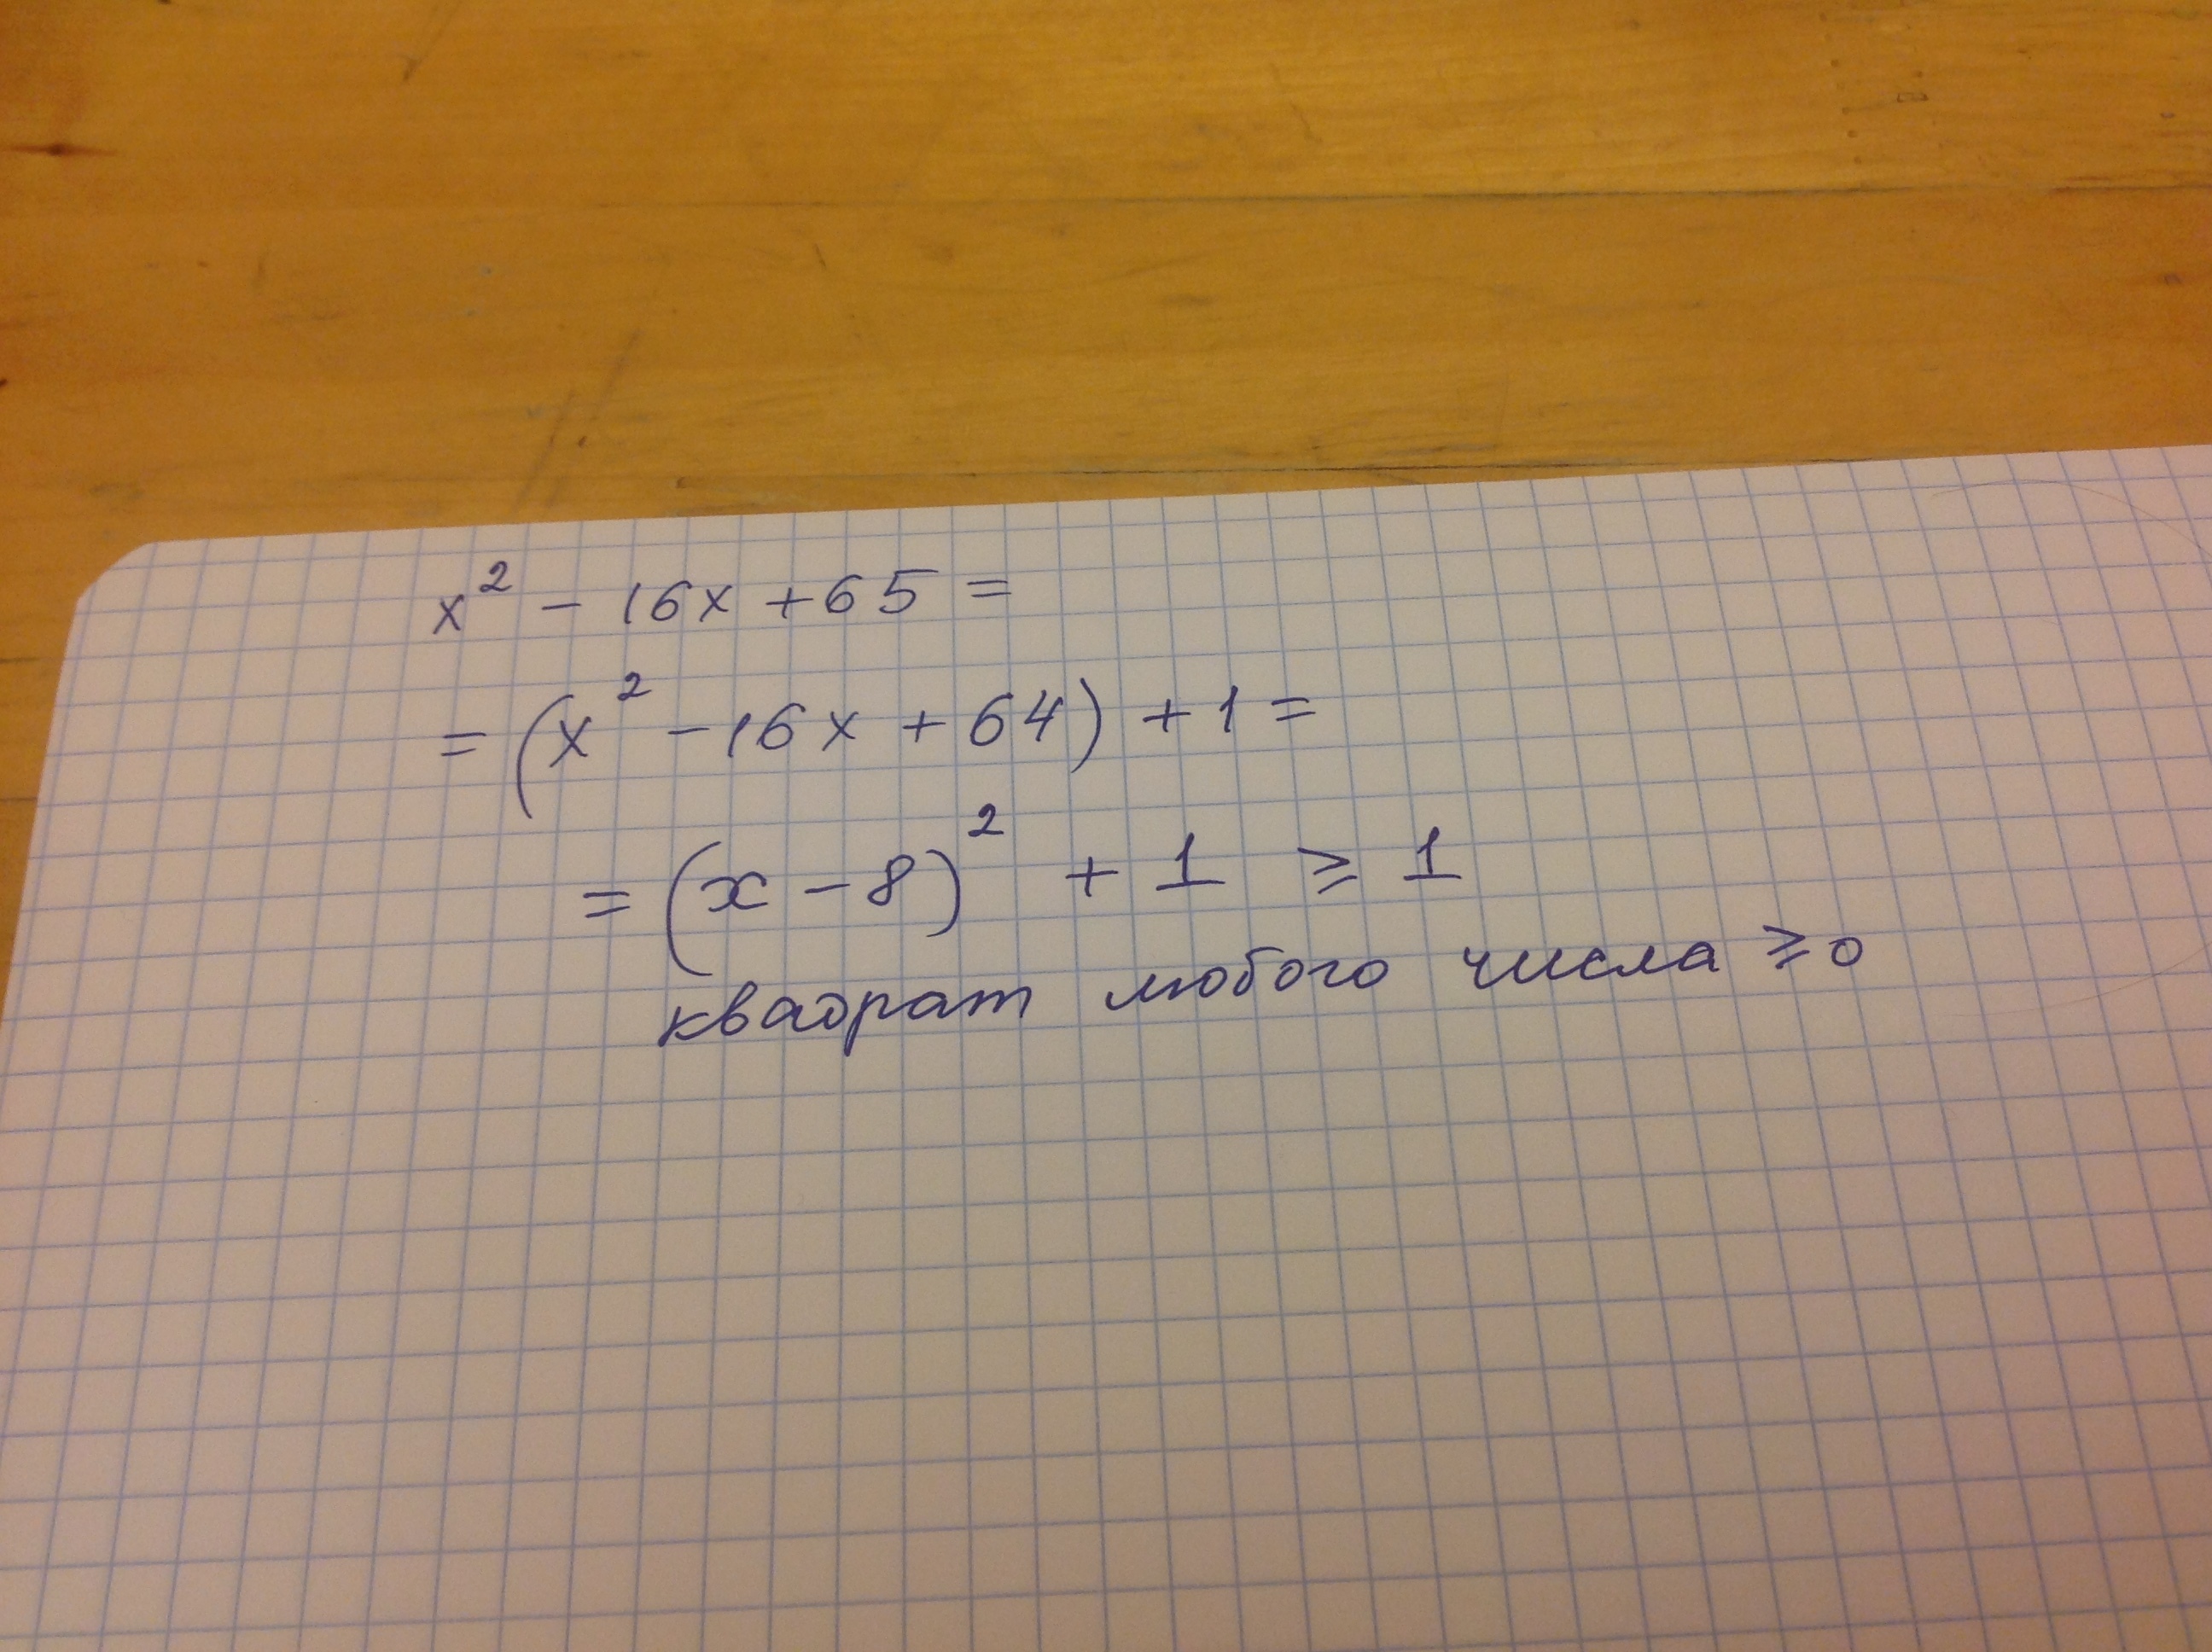 x² - 16x + 65 =
= (x² - 16x + 64) + 1 =
= (x - 8)² + 1 ⩾ 1
квадрат любого числа ⩾ 0